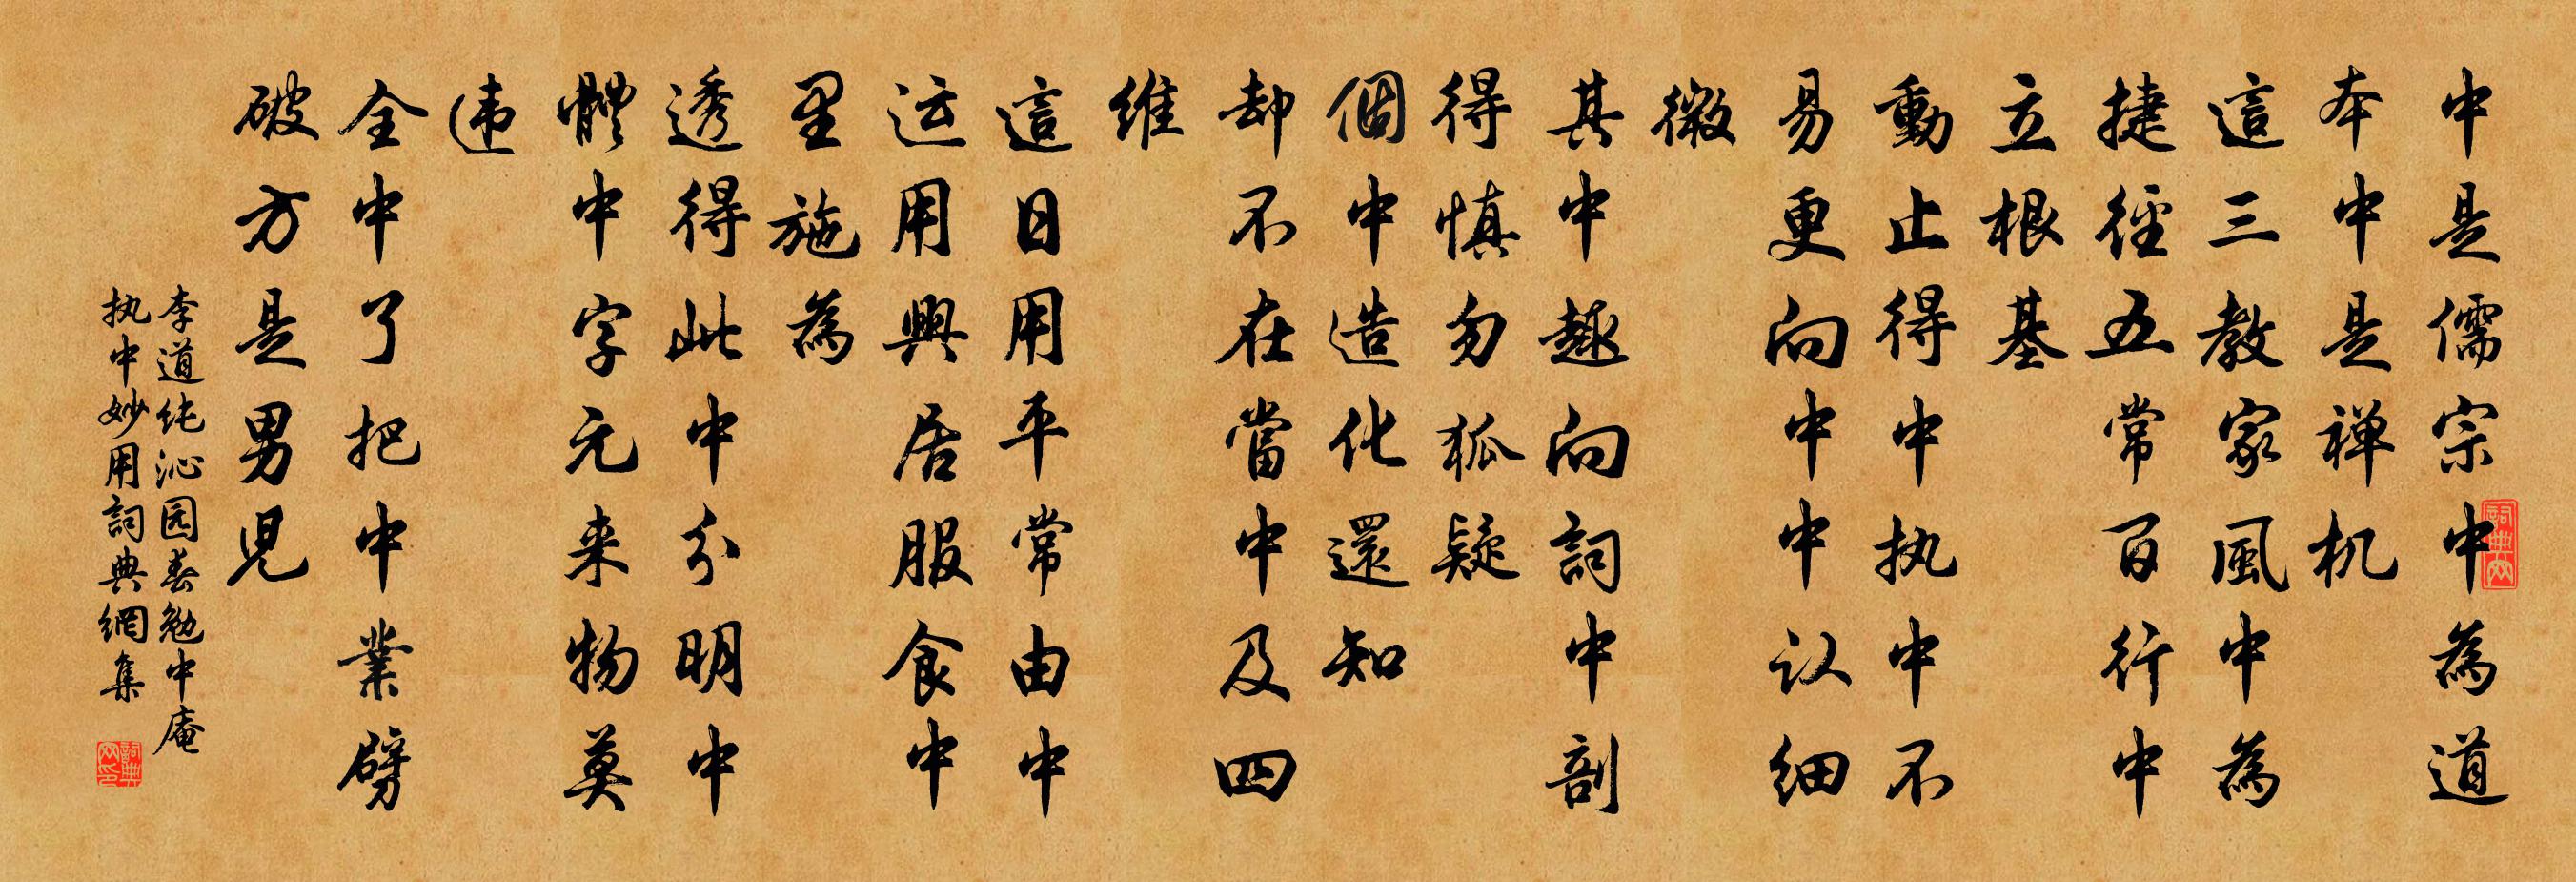 中是儒宗中為道
本中是禅机
這三教家風中為
捷徑五常百行中
立根基
動止得中执中不
易更向中中认细
微
其中趣向詞中剖
得慎勿狐疑
個中造化還知
却不在當中及四
維
這日用平常由中
运用興居服食中
里施為
透得此中分明中
體中字元来物莫
违
全中了把中業劈
破方是男児
李道纯沁园春勉中庵
执中妙用詞典網集
詞典网
詞典网印